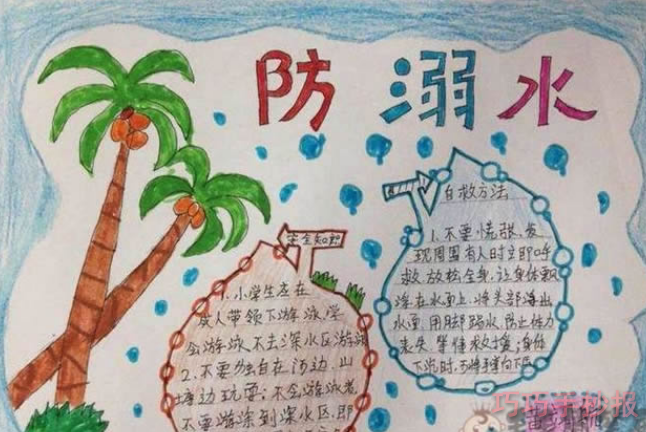 防溺水
安全知识
1.小学生应在
成人带领下游泳,学
会游泳,不去深水区游泳
2.不要独自在河边、山
塘边玩耍;不会游泳者
不要游涂到深水区,即
自救方法
1.不要慌张,发
现周围有人时立即呼
救,放松全身,让身体飘
浮在水面上,将头部浮出
水面,用脚踢水,防止体力
丧失,等待救援,身体
下沉时,
巧巧手抄报